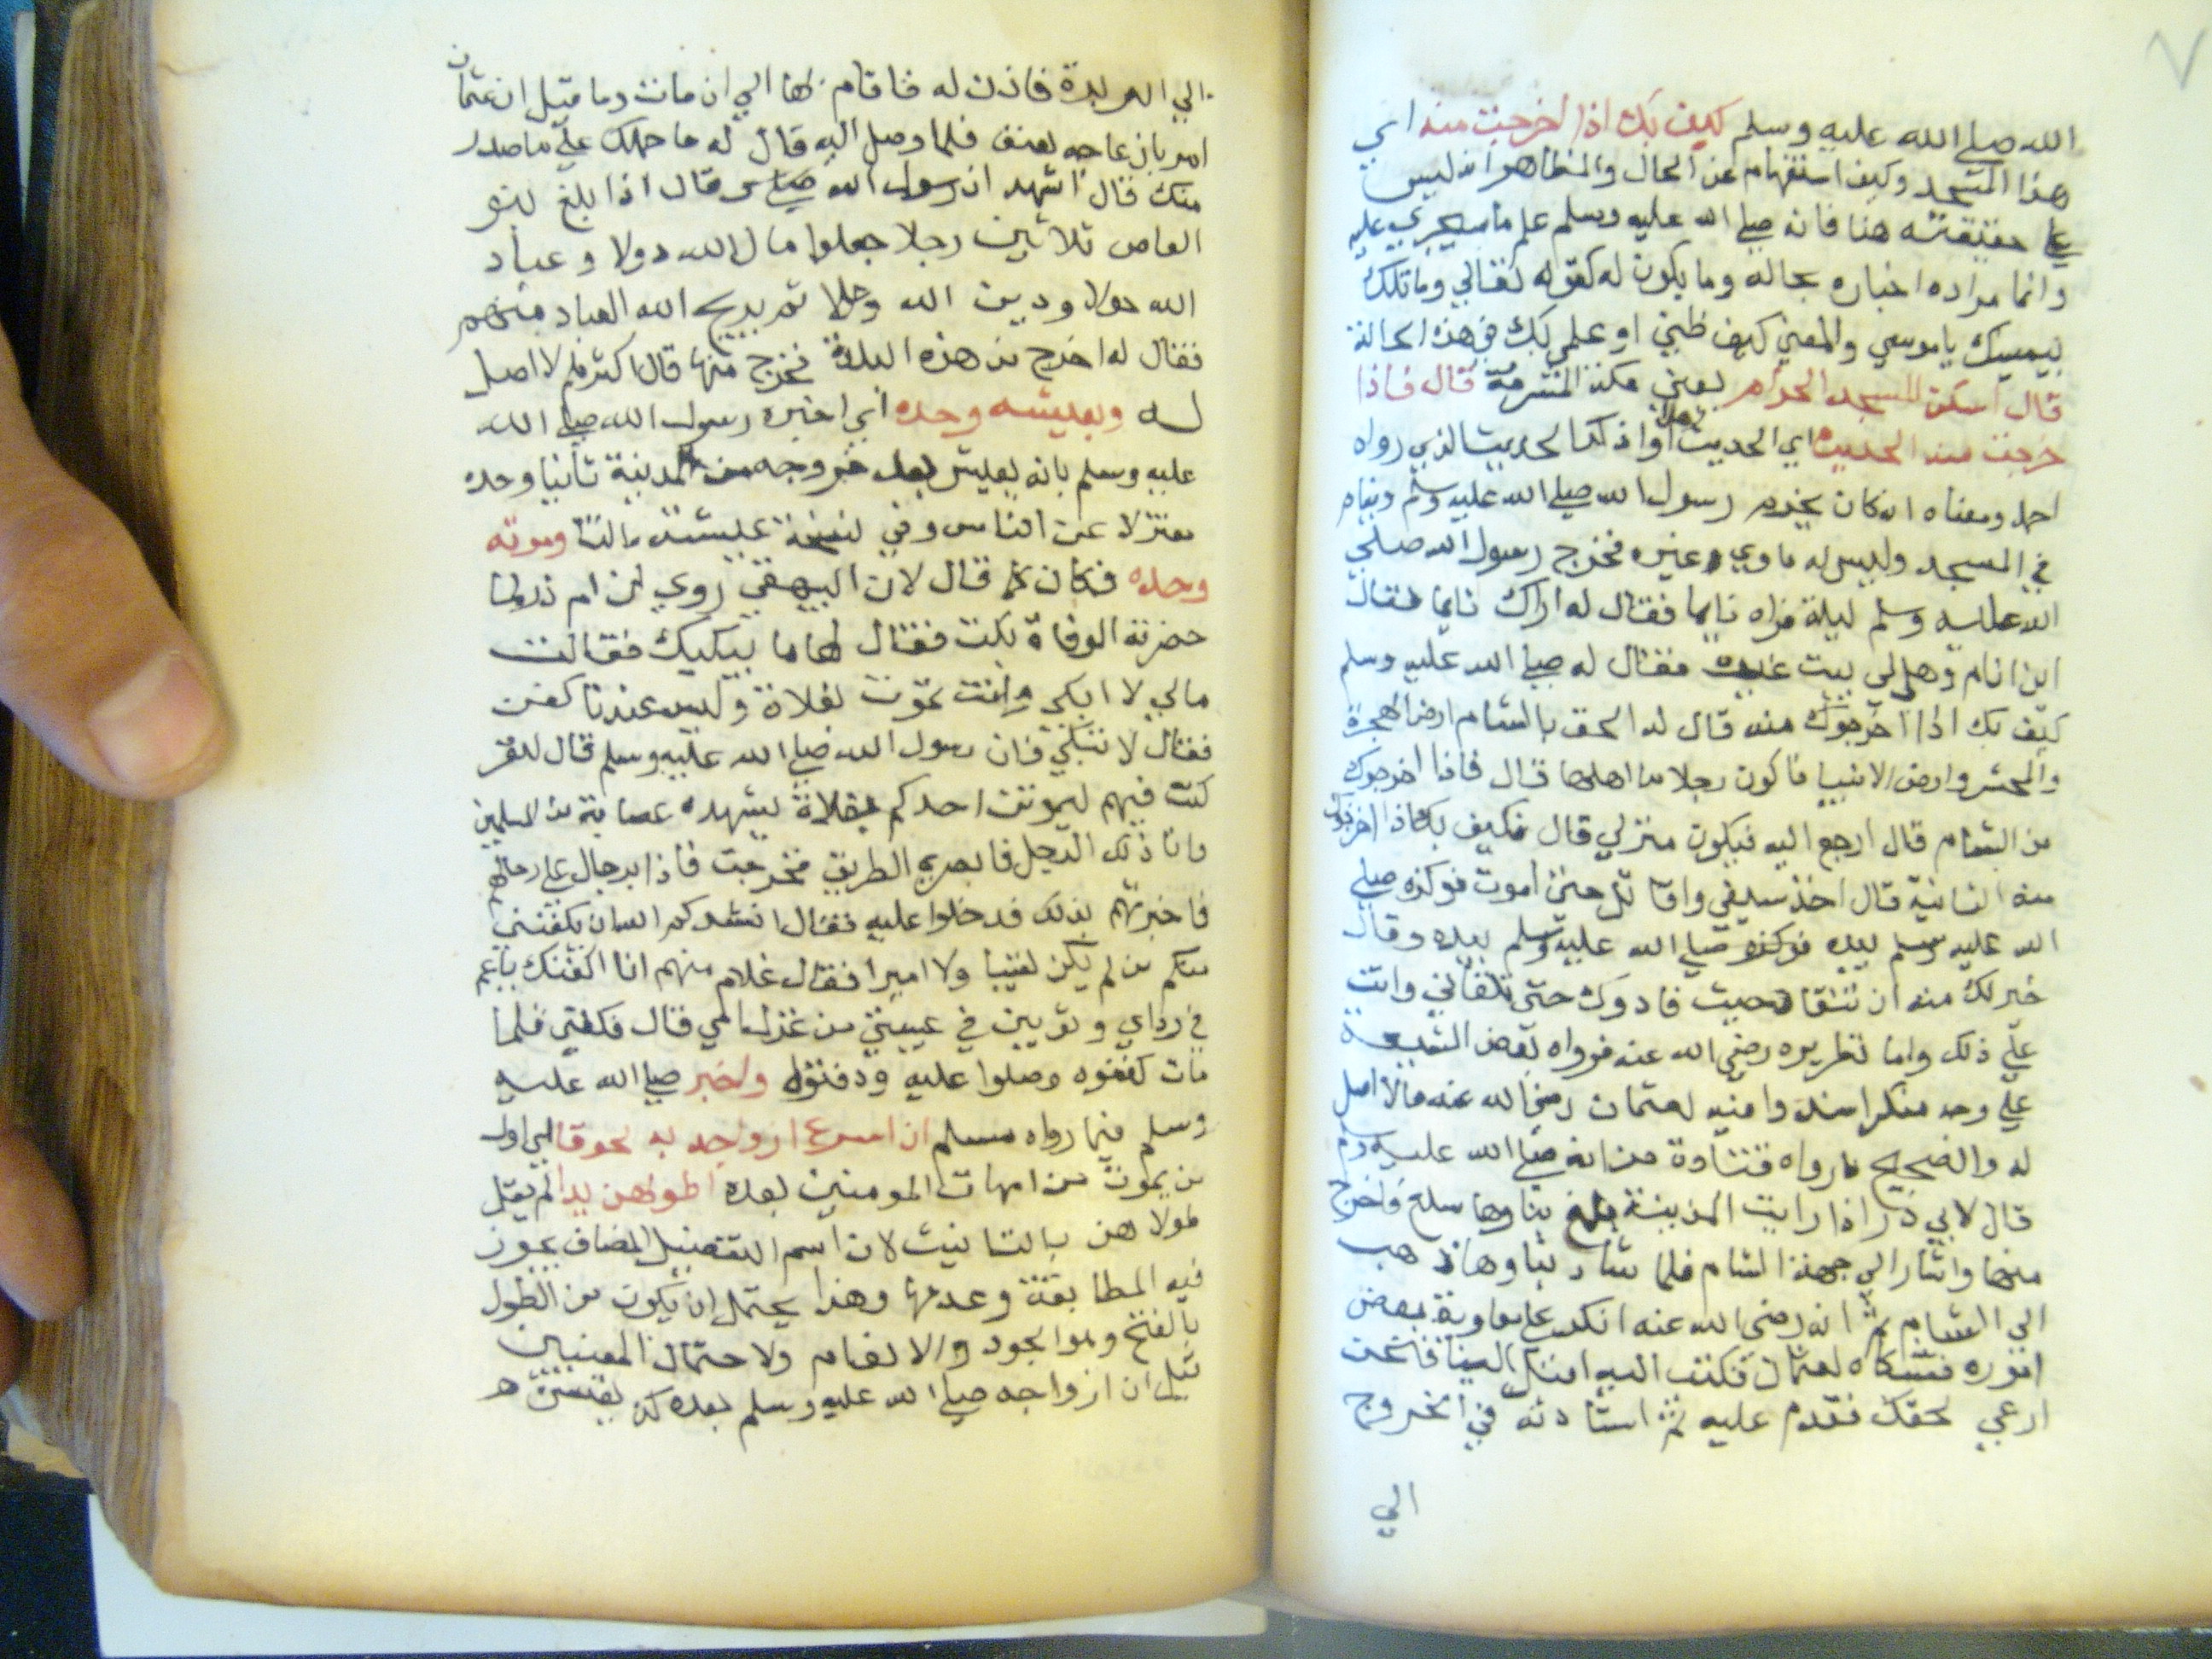 الله صلي الله عليه وسلم كيف بك اذا اخرجت منه اي
هذا المسجد وكيف استفهام عن الحال والظاهر انه ليس
علي حقيقته هنا فانه صلي الله عليه وسلم علم ما سيجري عليه
وانما مراده اخباره بحاله وما يكون له كقوله تعالي وما تلك
بيمينك يا موسي والمعني كيف ظني او علمي بك في هذه الحالة
قال اسكن المسجد الحرام يعني مكة المشرفة قال فاذا
خرجت منه الحديث اي الحديث او اذكر الحديث الذي رواه
احمد ومعناه انه كان يخدم رسول الله صلي الله عليه وسلم وينام
في المسجد وليس له ماوي غيره فخرج رسول الله صلي
الله عليه وسلم ليلة فراه نايما فقال له اراك نايما فقال
اين انام وهل لي بيت غيره فقال له صلي الله عليه وسلم
كيف بك اذا اخرجوك منه قال له الحق بالشام ارض الهجرة
والمحشر وارض الانبيا فاكون رجلا من اهلها قال فاذا اخرجوك
من الشام قال ارجع اليه فيكون منزلي قال فكيف بك اذا اخرجوك
منه الثانية قال اخذ سيفي واقاتل حتي اموت فوكزه صلي
الله عليه وسلم بيده فوكزه صلي الله عليه وسلم بيده وقال
خير لك منه ان تنقاد حيث قادوك حتي تلقاني وانت
علي ذلك واما تطريده رضي الله عنه فرواه بعض الشيعة
علي وجه منكر اسنده وامنيه لعثمان رضي الله عنه مالا اصل
له والصحيح ما رواه قتادة من انه صلي الله عليه وسلم
قال لابي ذر اذا رايت المدينة بلغ بناوها سلع فاخرج
منها واشار الي جهة الشام فلما شاد بناوها ذهب
الي الشام ثم انه رضي الله عنه انكر علي معاوية بعض
اموره فشكاه لعثمان فكتب اليه اقبل الينا فانحن
ارعي لحقك فقدم عليه ثم استاذنه في الخروج
الي
الي الربذة فاذن له فاقام بها الي ان مات وما قيل ان عثمان
امر بازعاجه بعنف فلما وصل اليه قال له ما حملك علي ما صدر
منك قال اشهد ان رسول الله صلي س قال اذا بلغ بنو
العاص ثلاثين رجلا جعلوا مال الله دولا وعباد
الله خولا ودين الله دخلا ثم يريح الله العباد منهم
فقال له اخرج من هذه البلدة فخرج منها قال اكثرهم لا اصل
له ويعيشه وحده اي اخبره رسول الله صلي الله
عليه وسلم بانه يعيش بعد خروجه من المدينة ثانيا وحده
معتزلا عن الناس وفي نسخة عيشته بالتا وموته
وحده فكان كما قال لان البيهقي روي ان ام ذر لما
حضرته الوفاة بكت فقال لها ما يبكيك فقالت
مالي لا ابكي وانت تموت بفلاة وليس عندنا كفن
فقال لا تبكي فان رسول الله صلي الله عليه وسلم قال لنفر
كنت فيهم ليموتن احدكم بفلاة يشهده عصابة من المسلمين
وانا ذلك الرجل فابصري الطريق فخرجت فاذا برجال علي رحالهم
فاخبرتهم بذلك فدخلوا عليه فقال انشدكم الله ان يكفنني
منكم من لم يكن نقيبا ولا اميرا فقال غلام منهم انا اكفنك ياعم
في رداي وثوبين في عيبتي من غزل امي قال فكفني فلما
مات كفنوه وصلوا عليه ودفنوه واخبر صلي الله عليه
وسلم فيما رواه مسلم ان اسرع ازواجه به لحوقا الي اول
من يموت من امهات المومنين بعده اطولهن يدا لم يقل
طولاهن بالتانيث لان اسم التفضيل المضاف يجوز
فيه المطابقة وعدمها وهذا يحتمل ان يكون من الطول
بالفتح وهو الجود والانعام ولاحتمال المعنيين
قيل ان ازواجه صلي الله عليه وسلم بعده كن يقسن